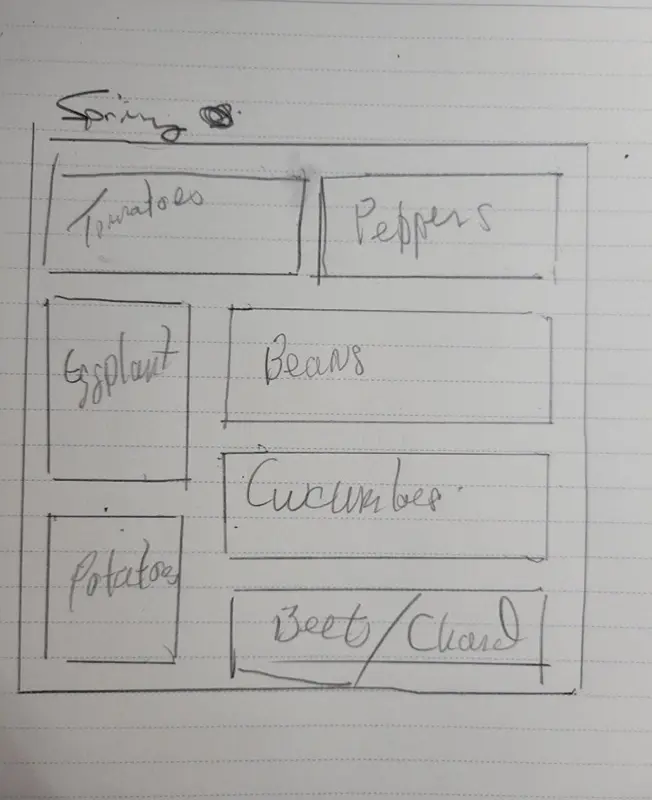 Spring
Tomatoes
Peppers
Eggplant
Beans
Cucumber
Potatoes
Beets/Chard